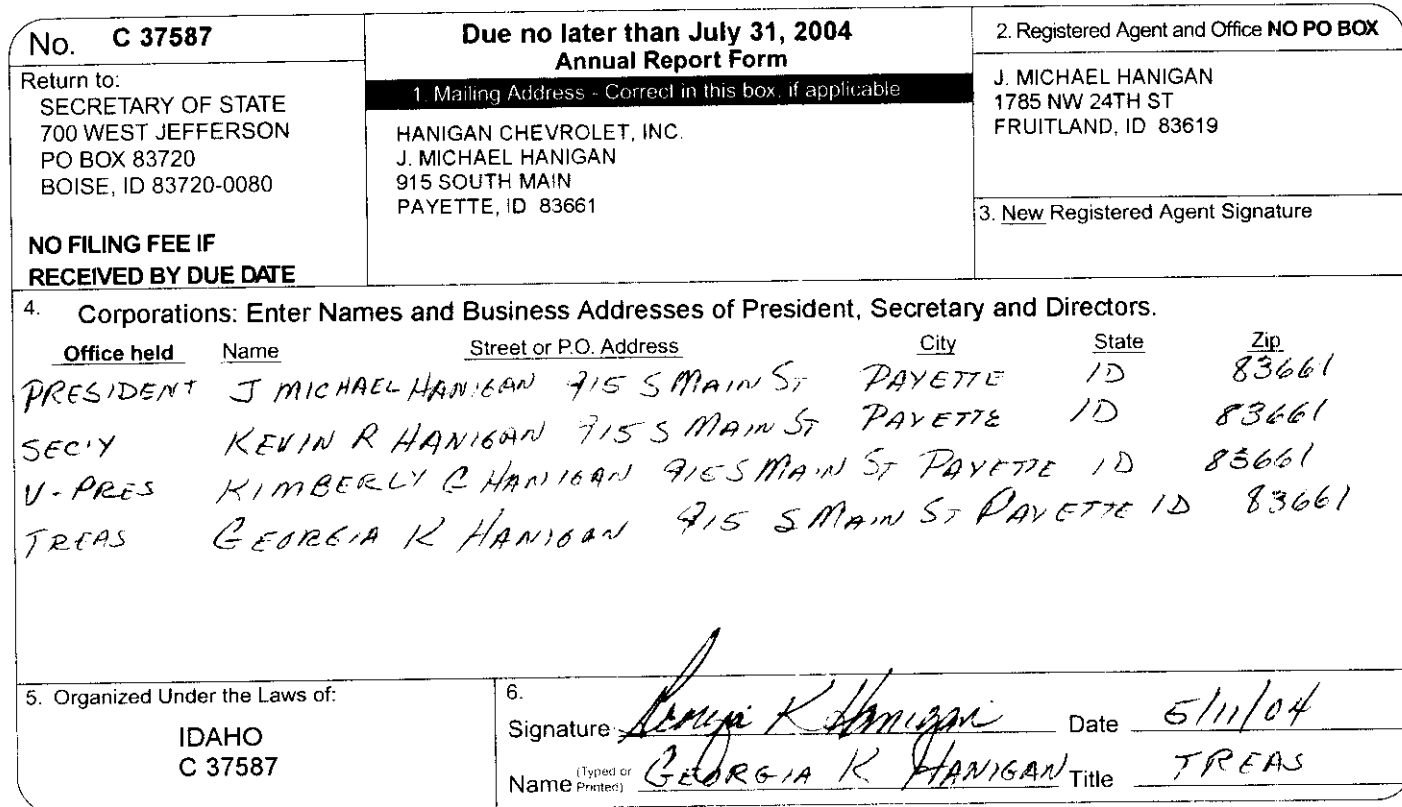 No. C 37587
Return to:
SECRETARY OF STATE
700 WEST JEFFERSON
PO BOX 83720
BOISE, ID 83720-0080
NO FILING FEE IF
RECEIVED BY DUE DATE
Due no later than July 31, 2004
Annual Report Form
1. Mailing Address - Correct in this box, if applicable
HANIGAN CHEVROLET, INC.
J. MICHAEL HANIGAN
915 SOUTH MAIN
PAYETTE, ID 83661
2. Registered Agent and Office NO PO BOX
J. MICHAEL HANIGAN
1785 NW 24TH ST
FRUITLAND, ID 83619
3. New Registered Agent Signature
4. Corporations: Enter Names and Business Addresses of President, Secretary and Directors.
Office held Name Street or P.O. Address City State Zip
PRESIDENT J MICHAEL HANIGAN 915 S MAIN ST PAYETTE ID 83661
SEC'Y KEVIN R HANIGAN 915 S MAIN ST PAYETTE ID 83661
V-PRES KIMBERLY C HANIGAN 915 S MAIN ST PAYETTE ID 83661
TREAS GEORGIA K HANIGAN 915 S MAIN ST PAYETTE ID 83661
5. Organized Under the Laws of:
IDAHO
C 37587
6.
Signature Georgia K Hanigan Date 5/11/04
Name (Typed or Printed) GEORGIA K HANIGAN Title TREAS